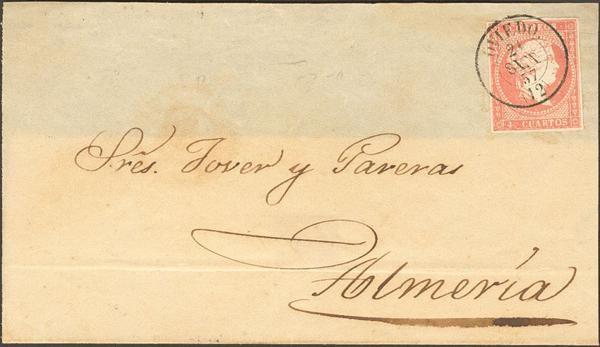 OVIEDO.
57
12
4 CUARTOS
Sres. Jover y Pareras
Almería